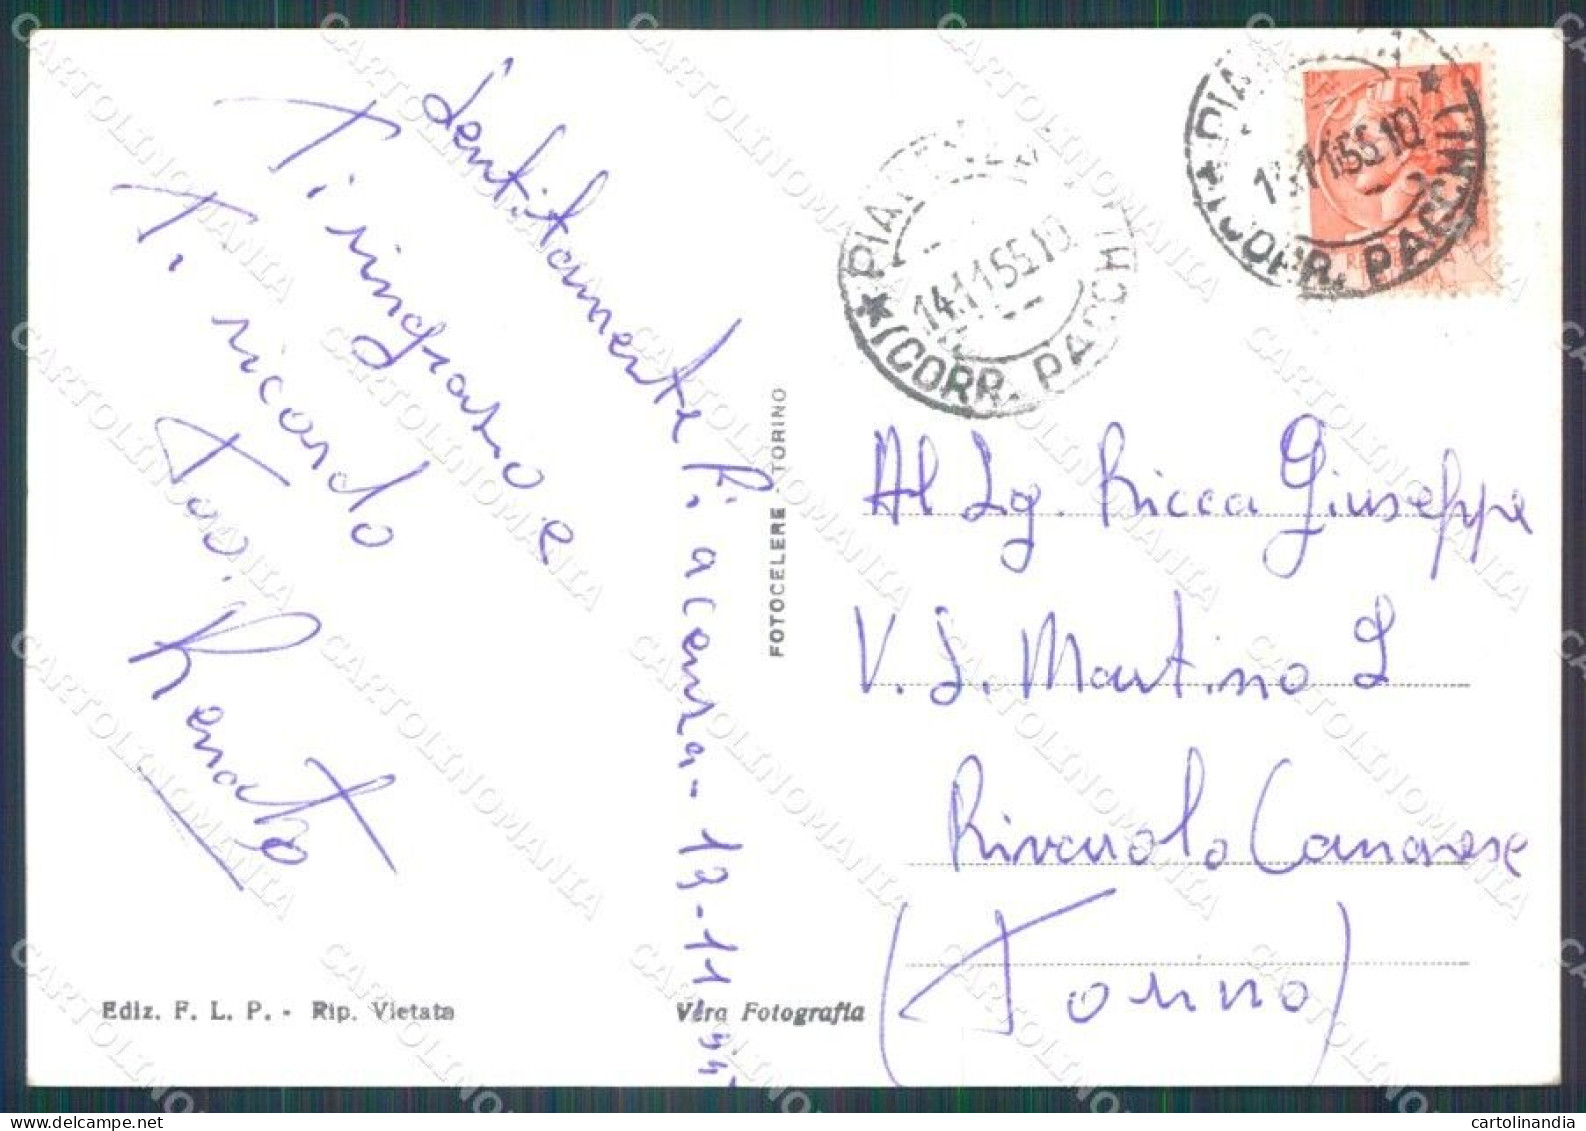 Sentitamente
Ti ringrazio e
Ti ricordo
Tuo
Renato
Piacenza - 13-11-
FOTOCELERE - TORINO
PIA
14.11.55.10
(CORR. PACCHI)
PIA
11.55.10
(CORR. PACCHI)
Al Sg. Ricca Giuseppe
V. S. Martino 2
Rivarolo Canavese
(Torino)
Ediz. F. L. P. - Rip. Vietata
Vera Fotografia
CARTOLINOMANIA
cartolinandia